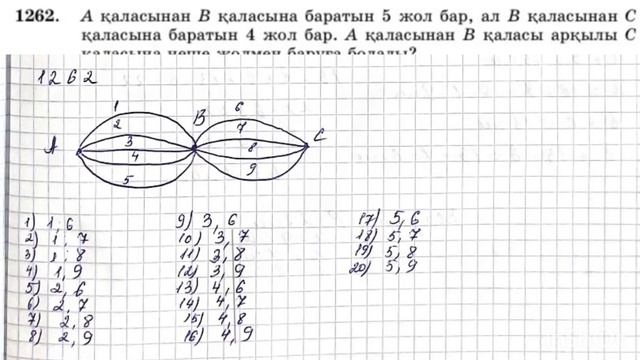 1262. А қаласынан В қаласына баратын 5 жол бар, ал В қаласынан С
қаласына баратын 4 жол бар. А қаласынан В қаласы арқылы С
қаласына неше жолмен баруға болады?
1262
1
2
3
4
5
A
B
6
7
8
9
C
1) 1; 6
2) 1; 7
3) 1; 8
4) 1, 9
5) 2, 6
6) 2, 7
7) 2, 8
8) 2, 9
9) 3, 6
10) 3, 7
11) 3, 8
12) 3, 9
13) 4, 6
14) 4, 7
15) 4, 8
16) 4, 9
17) 5, 6
18) 5, 7
19) 5, 8
20) 5, 9